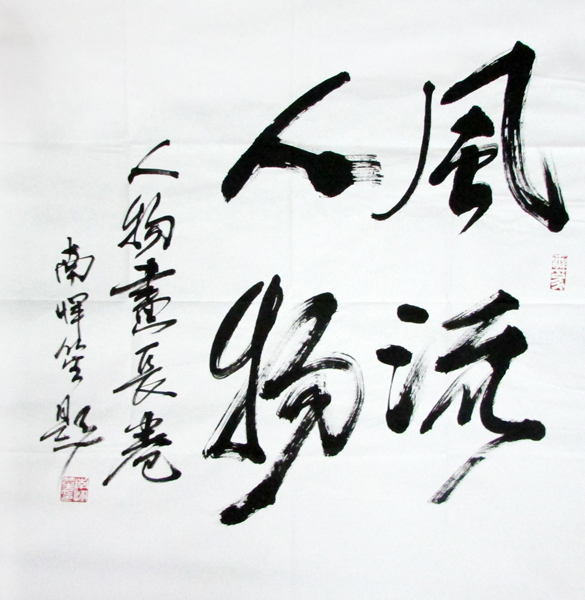 風流
人物
人物畫長卷
南惲笙題